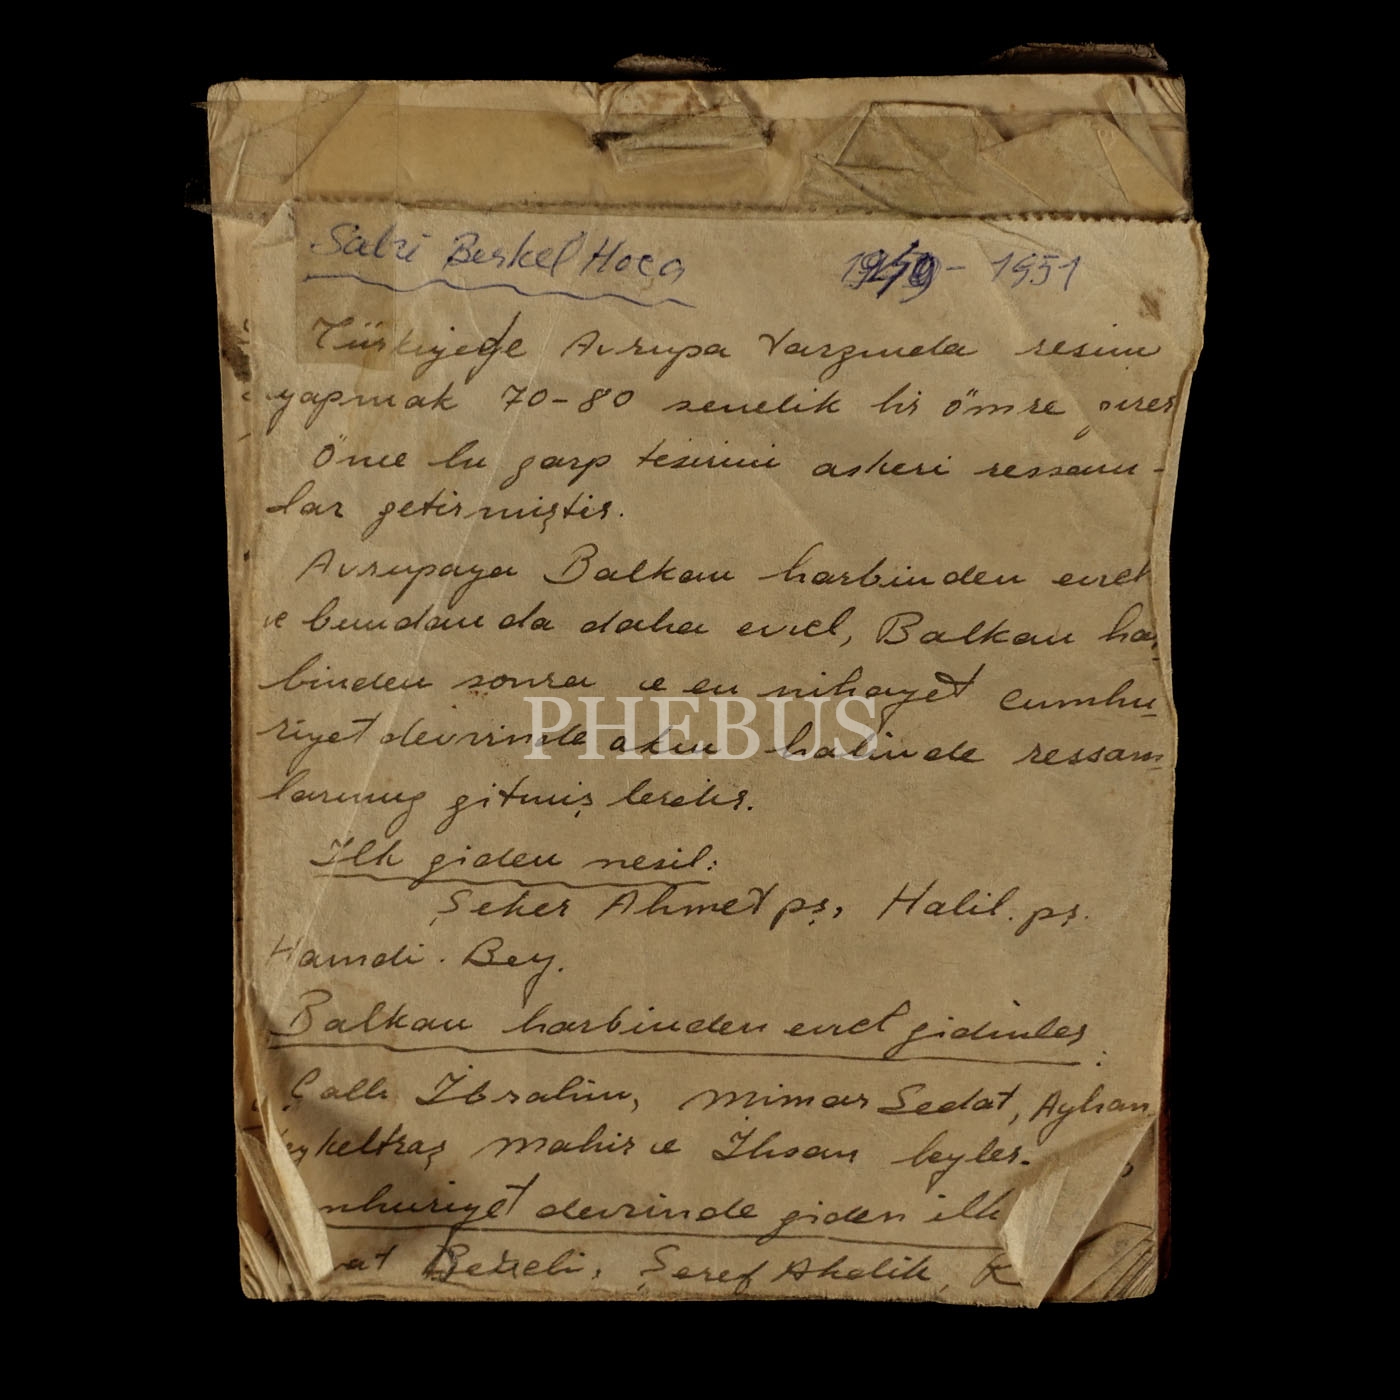 Sabri Berkel Hoca 1949 - 1951
Türkiyede Avrupa tarzında resim
yapmak 70-80 senelik bir ömre girer
Önce bu garp tesirini askeri ressam-
lar getirmiştir.
Avrupaya Balkan harbinden evvel
ve bundan da daha evvel, Balkan har-
binden sonra ve en nihayet cumhu-
riyet devrinde akın halinde ressam-
larımız gitmişlerdir.
PHEBUS
İlk giden nesil:
Şeker Ahmet pş, Halil. pş.
Hamdi. Bey.
Balkan harbinden evvel gidenler:
Çallı İbrahim, Mimar Sedat, Ayhan,
heykeltraş Mahir ve İhsan beyler.
mhuriyet devrinde giden ilk
at Bereli, Şeref Akdik, R